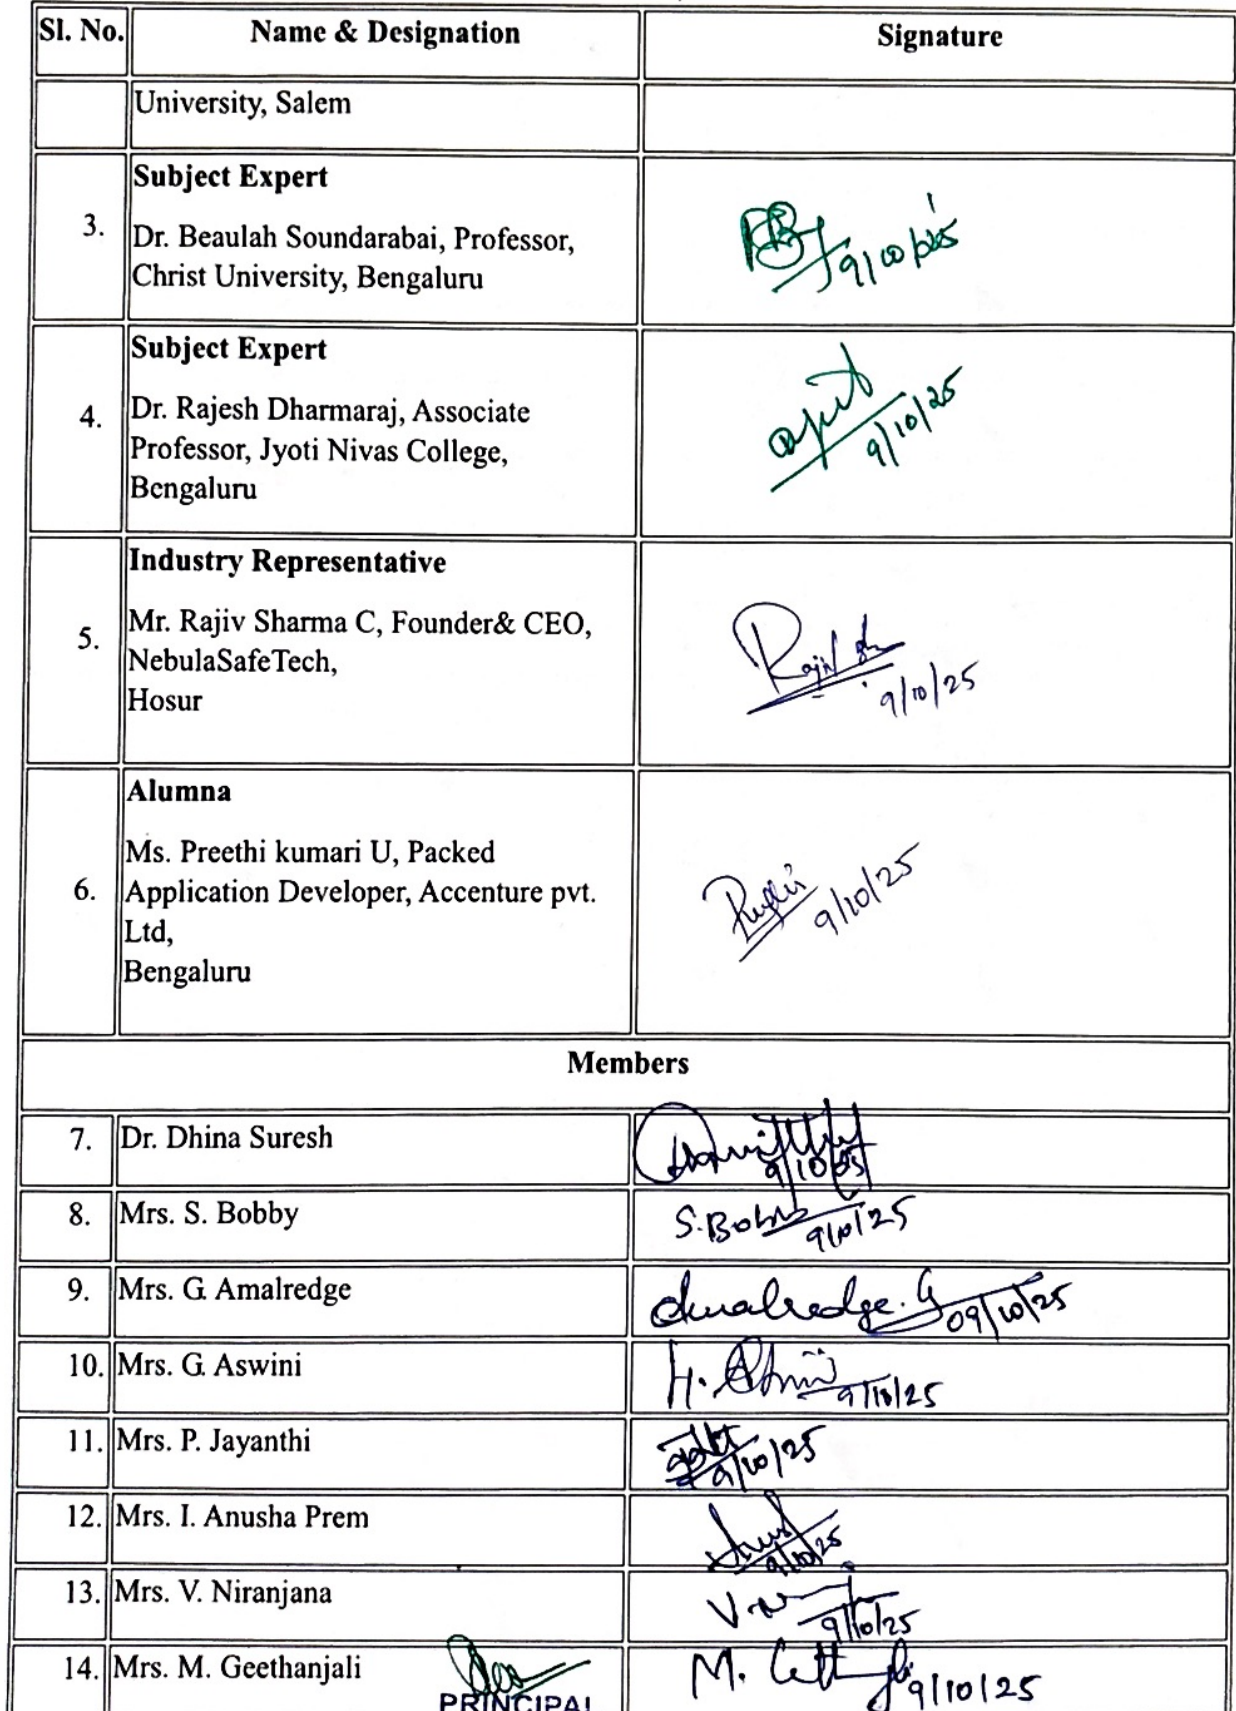 Sl. No. Name & Designation Signature
University, Salem
Subject Expert
3.
Dr. Beaulah Soundarabai, Professor,
Christ University, Bengaluru
9/10/2025
Subject Expert
4.
Dr. Rajesh Dharmaraj, Associate
Professor, Jyoti Nivas College,
Bengaluru
9/10/25
Industry Representative
5.
Mr. Rajiv Sharma C, Founder& CEO,
NebulaSafeTech,
Hosur
9/10/25
Alumna
6.
Ms. Preethi kumari U, Packed
Application Developer, Accenture pvt.
Ltd,
Bengaluru
9/10/25
Members
7. Dr. Dhina Suresh
9/10/25
8. Mrs. S. Bobby S.Bobby
9/10/25
9. Mrs. G. Amalredge Amalredge. G
09/10/25
10. Mrs. G. Aswini
9/10/25
11. Mrs. P. Jayanthi
9/10/25
12. Mrs. I. Anusha Prem
9/10/25
13. Mrs. V. Niranjana
9/10/25
14. Mrs. M. Geethanjali
9/10/25
PRINCIPAL